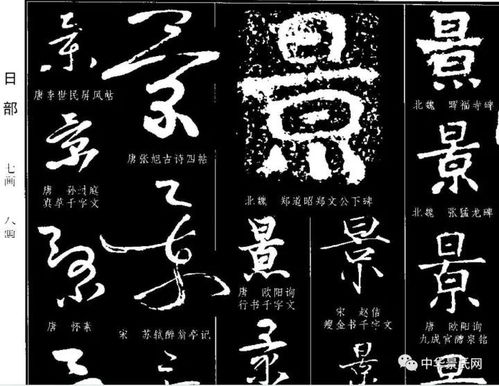 日部
七画 八画
景
唐李世民屏风帖
景
唐 孙过庭
真草千字文
景
唐 怀素
景
唐张旭古诗四帖
景
宋 苏轼醉翁亭记
景
北魏 郑道昭郑文公下碑
景
唐 欧阳询
行书千字文
景
景
宋 赵佶
瘦金书千字文
景
景
北魏 晖福寺碑
景
北魏 张猛龙碑
景
唐 欧阳询
九成宫醴泉铭
景
中华景氏网